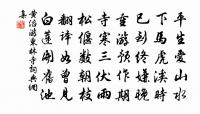 平生愛山水
下馬虎溪時
已到終嫌晚
重游預作期
寺寒三伏雨
松偃數朝枝
翻譯如曾見
白蓮開舊池
黃滔游東林寺詞典網
集